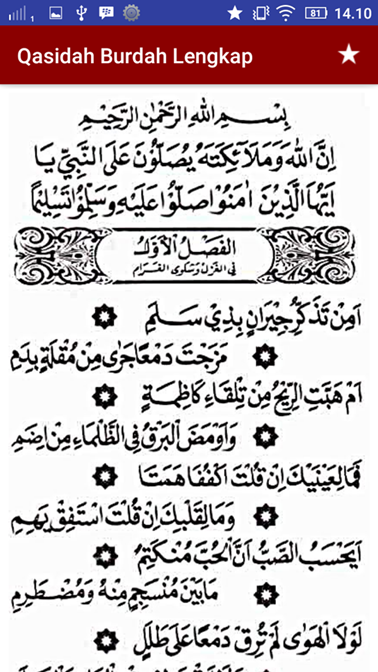 81 14.10
Qasidah Burdah Lengkap
بِسْمِ اللهِ الرَّحْمٰنِ الرَّحِيْمِ
اِنَّ اللهَ وَمَلَائِكَتَهُ يُصَلُّوْنَ عَلَى النَّبِيِّ يَا
اَيُّهَا الَّذِيْنَ اٰمَنُوْا صَلُّوْا عَلَيْهِ وَسَلِّمُوْا تَسْلِيْمًا
الفَصْلُ الْاَوَّلُ
فِي الغَزَلِ وَشَكْوَى الغَرَامِ
اَمِنْ تَذَكُّرِ جِيْرَانٍ بِذِيْ سَلَمِ
مَزَجْتَ دَمْعًا جَرٰى مِنْ مُقْلَةٍ بِدَمِ
اَمْ هَبَّتِ الرِّيْحُ مِنْ تِلْقَاءِ كَاظِمَةٍ
وَاَوْمَضَ الْبَرْقُ فِي الظَّلْمَاءِ مِنْ اِضَمِ
فَمَا لِعَيْنَيْكَ اِنْ قُلْتَ اكْفُفَا هَمَتَا
وَمَا لِقَلْبِكَ اِنْ قُلْتَ اسْتَفِقْ يَهِمِ
اَيَحْسَبُ الصَّبُّ اَنَّ الْحُبَّ مُنْكَتِمٌ
مَا بَيْنَ مُنْسَجِمٍ مِنْهُ وَمُضْطَرِمِ
لَوْلَا الْهَوٰى لَمْ تُرِقْ دَمْعًا عَلٰى طَلَلٍ